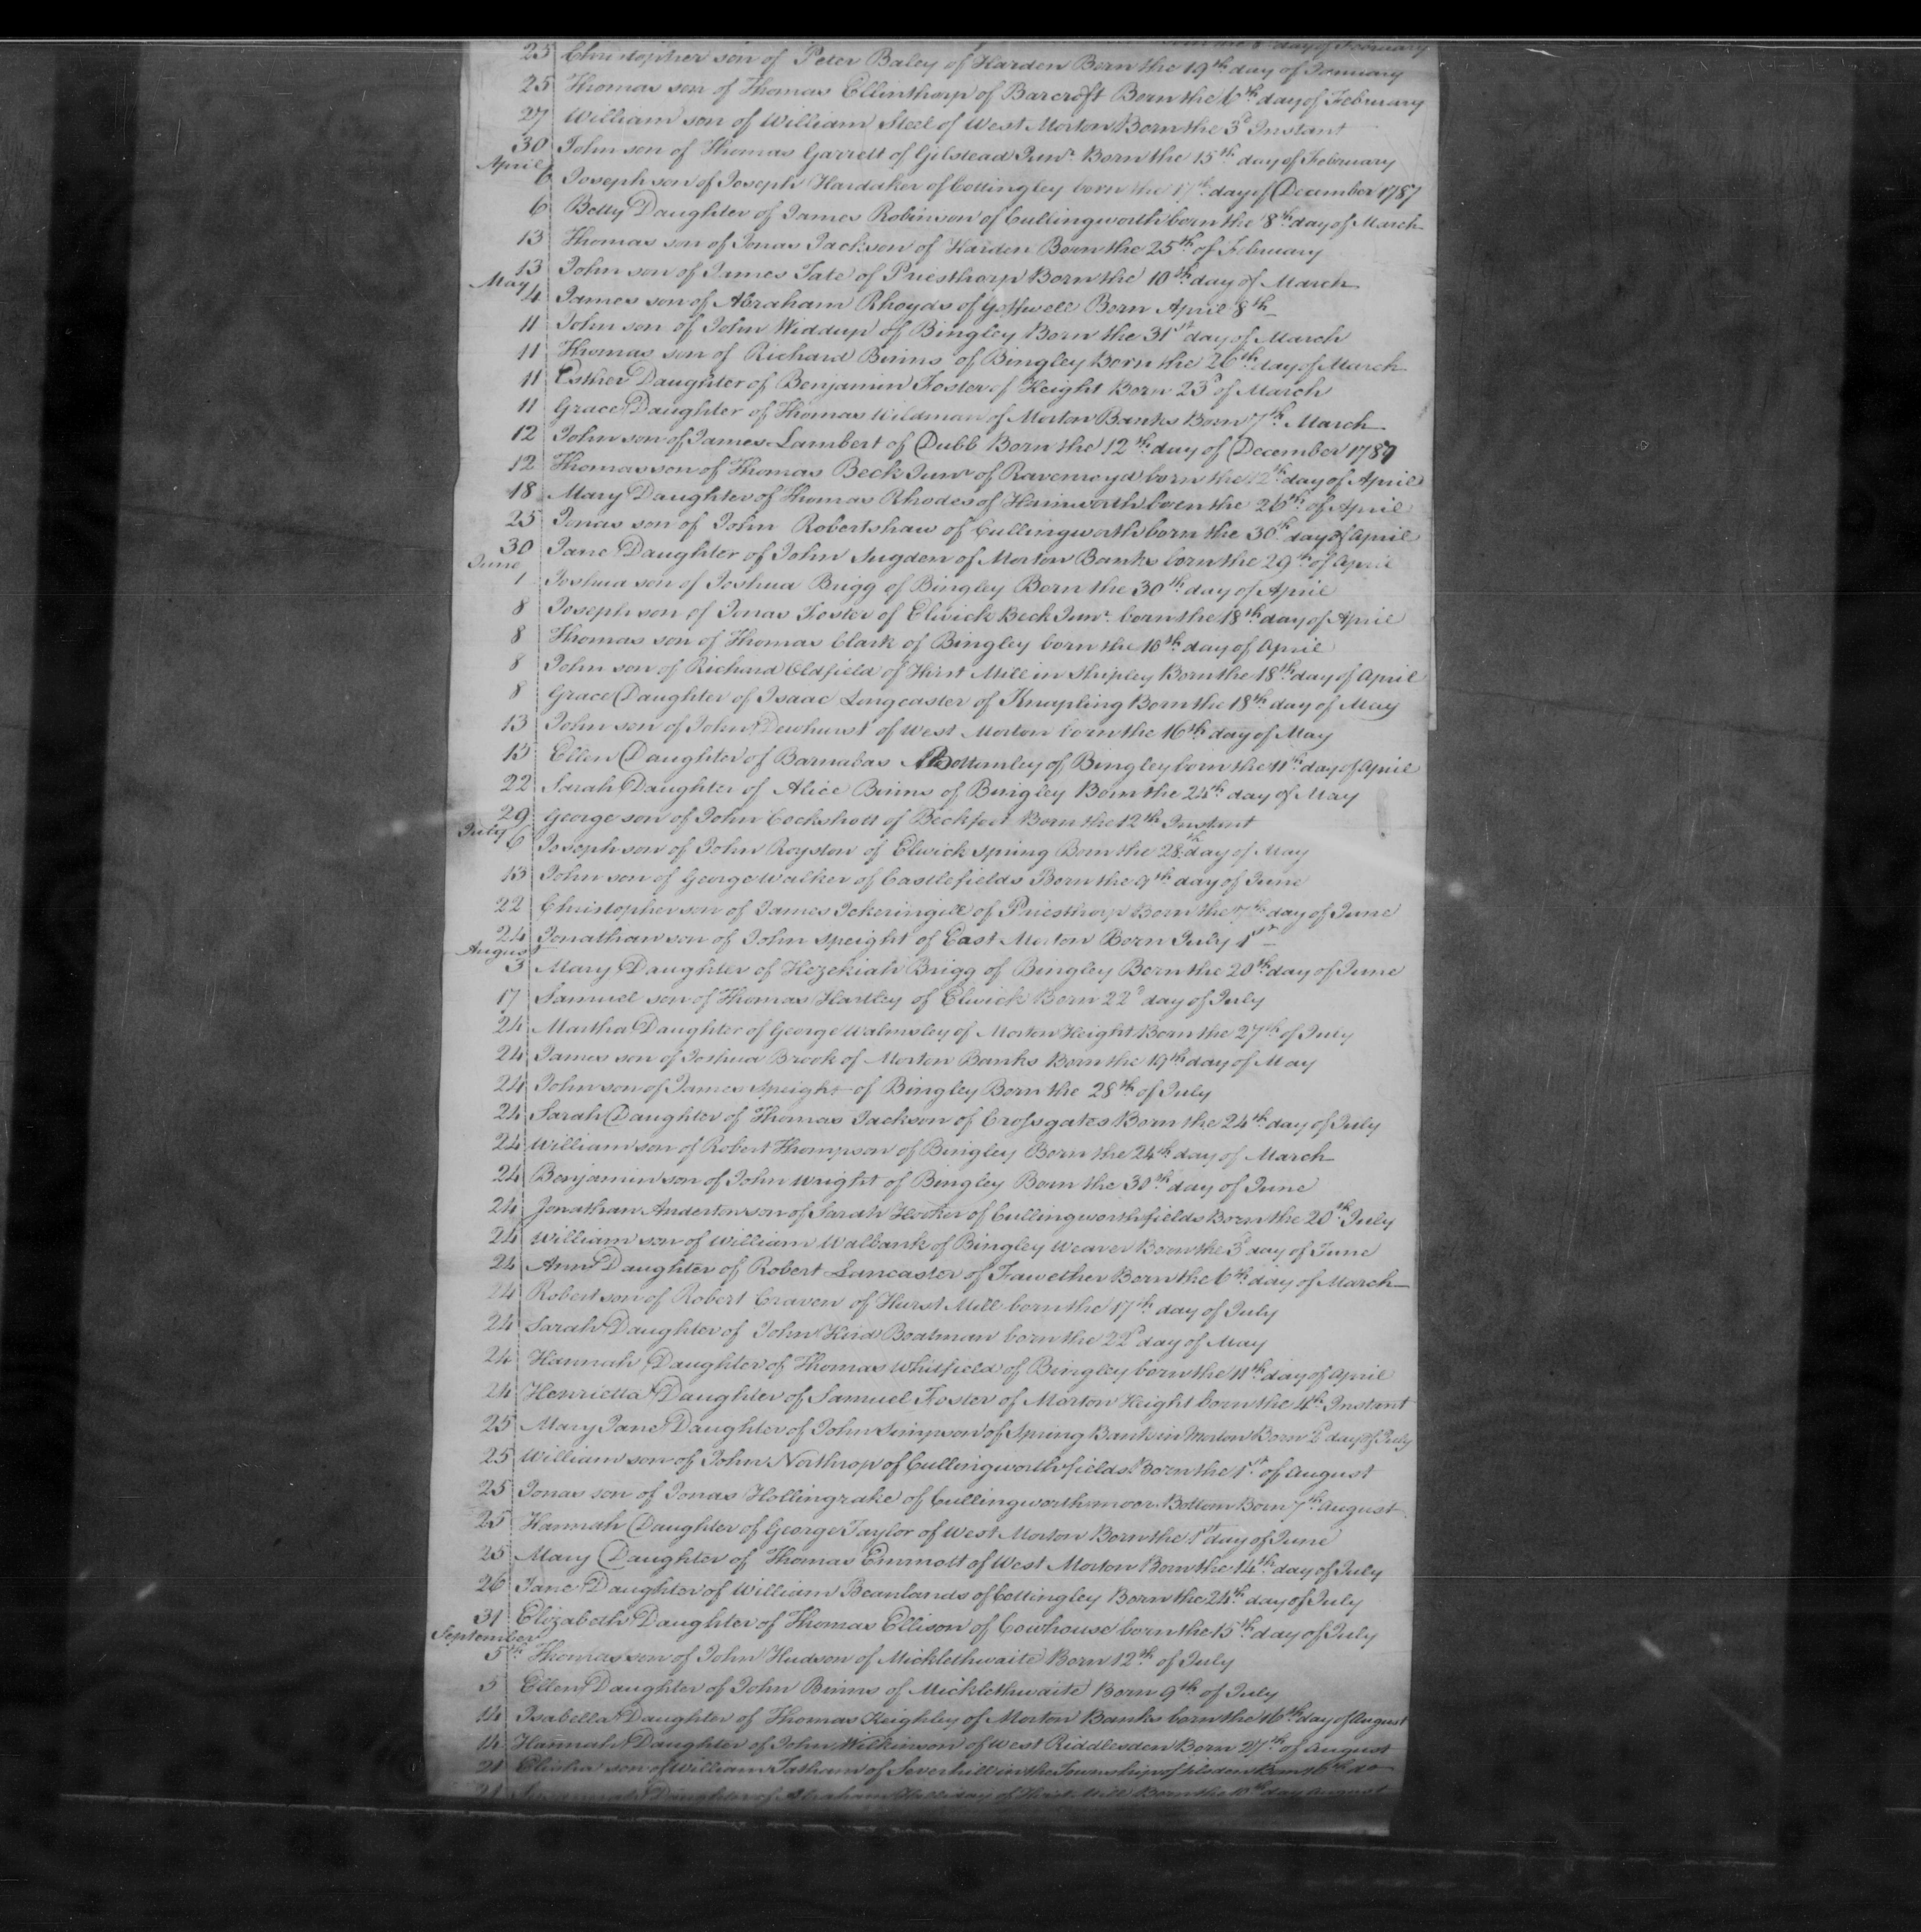 day of February
25 Christopher son of Peter Baley of Harden Born the 19th day of January
25 Thomas son of Thomas Ellinthorp of Barcroft Born the 6th day of February
27 William son of William Steel of West Morton Born the 3d Instant
30 John son of Thomas Garrett of Gilstead Junr. Born the 15th day of February
April
6 Joseph son of Joseph Hardaker of Cottingley born the 17th day of December 1787
6 Betty Daughter of James Robinson of Cullingworth born the 8th day of March
13 Thomas son of Jonas Jackson of Harden Born the 25th of February
13 John son of James Tate of Priesthorp Born the 10th day of March
May
4 James son of Abraham Rhoyds of Born April 8th
11 John son of John Widdup of Bingley Born the 31st day of March
11 Thomas son of Richard Binns of Bingley Born the 26th day of March
11 Esther Daughter of Benjamin Foster of Height Born 23d of March
11 Grace Daughter of Thomas Wildman of Morton Banks Born 7th March
12 John son of James Lambert of Dubb Born the 12th day of December 1787
12 Thomas son of Thomas Beck Junr of Ravenroyd born the 12th day of April
18 Mary Daughter of Thomas Rhodes of Hainworth born the 26th of April
25 Jonas son of John Robertshaw of Cullingworth born the 30th day of April
30 Jane Daughter of John Sugden of Morton Banks born the 29th of April
June
1 Joshua son of Joshua Brigg of Bingley Born the 30th day of April
8 Joseph son of Jonas Foster of Elwick Beck Junr. born the 18th day of April
8 Thomas son of Thomas Clark of Bingley born the 16th day of April
8 John son of Richard Oldfield of Hirst Mill in Shipley Born the 18th day of April
8 Grace Daughter of Isaac Longcaster of Knapling Born the 18th day of May
13 John son of John Dewhurst of West Morton born the 16th day of May
15 Ellen Daughter of Barnabas Bottomley of Bingley born the 11th day of April
22 Sarah Daughter of Alice Binns of Bingley Born the 24th day of May
29 George son of John Cockshott of Beckfoot Born the 12th Instant
July
6 Joseph son of John Royston of Elwick spring Born the 28th day of May
13 John son of George Walker of Castlefields Born the 9th day of June
22 Christopher son of James Ickeringill of Priesthorp Born the 7th day of June
24 Jonathan son of John Speight of East Morton Born July 1st
August
3 Mary Daughter of Hezekiah Brigg of Bingley Born the 20th day of June
17 Samuel son of Thomas Hartley of Elwick Born 22d day of July
24 Martha Daughter of George Walmsley of Morton Height Born the 27th of July
24 James son of Joshua Brook of Morton Banks Born the 19th day of May
24 John son of James Speight of Bingley Born the 28th of July
24 Sarah Daughter of Thomas Jackson of Crossgates Born the 24th day of July
24 William son of Robert Thompson of Bingley Born the 24th day of March
24 Benjamin son of John Wright of Bingley Born the 30th day of June
24 Jonathan Anderton son of Sarah of Cullingworthfields Born the 20th July
24 William son of William Walbank of Bingley Weaver Born the 3d day of June
24 Ann Daughter of Robert Lancaster of Fawether Born the 6th day of March
24 Robert son of Robert Craven of Hurst Mill born the 17th day of July
24 Sarah Daughter of John Hird Boatman born the 22d day of May
24 Hannah Daughter of Thomas Whitfield of Bingley born the 11th day of April
24 Henrietta Daughter of Samuel Foster of Morton Height born the 4th Instant
25 Mary Jane Daughter of John Simpson of Spring Bank in Morton Born 2d day of July
25 William son of John Northrop of Cullingworthfields Born the 1st of August
25 Jonas son of Jonas Hollingrake of Cullingworthmoor Bottom Born 7th August
25 Hannah Daughter of George Taylor of West Morton Born the 1st day of June
25 Mary Daughter of Thomas Emmott of West Morton Born the 14th day of July
26 Jane Daughter of William Beanlands of Cottingley Born the 24th day of July
31 Elizabeth Daughter of Thomas Ellison of Cowhouse born the 15th day of July
September
5th Thomas son of John Hudson of Micklethwaite Born 12th of July
5 Ellen Daughter of John Binns of Micklethwaite Born 9th of July
14 Isabella Daughter of Thomas Keighley of Morton Banks born the 16th day of August
14 Hannah Daughter of John Wilkinson of West Riddlesden Born 21th of August
21 Elisha son of William Tatham of in the Township of Silsden Born 16th do
21 Daughter of Abraham Holliday of Hirst Mill Born the day August